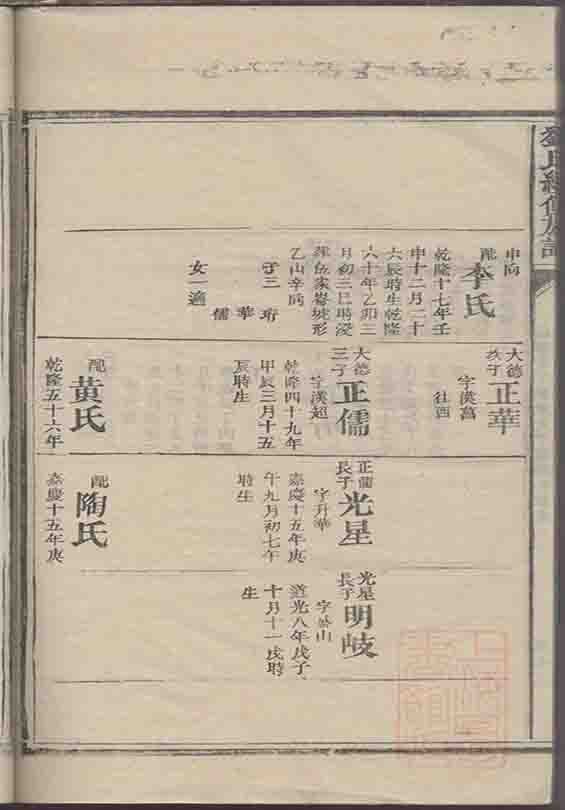 劉氏續修族譜
申向
配
李氏
乾隆十七年壬
申十二月二十
六辰時生乾隆
六十年乙卯三
月初三巳時
伍家
形
乙山辛向
子三
珩
華
儒
女一適
大德
次子
正華
字漢萬
往西
大德
三子
正儒
字漢超
乾隆四十九年
甲辰三月十五
辰時生
配
黄氏
乾隆五十六年
正儒
長子
光星
字升華
嘉慶十五年庚
午九月初七午
時生
配
陶氏
嘉慶十五年庚
光星
長子
明岐
山
道光八年戊子
十月十一戌時
生